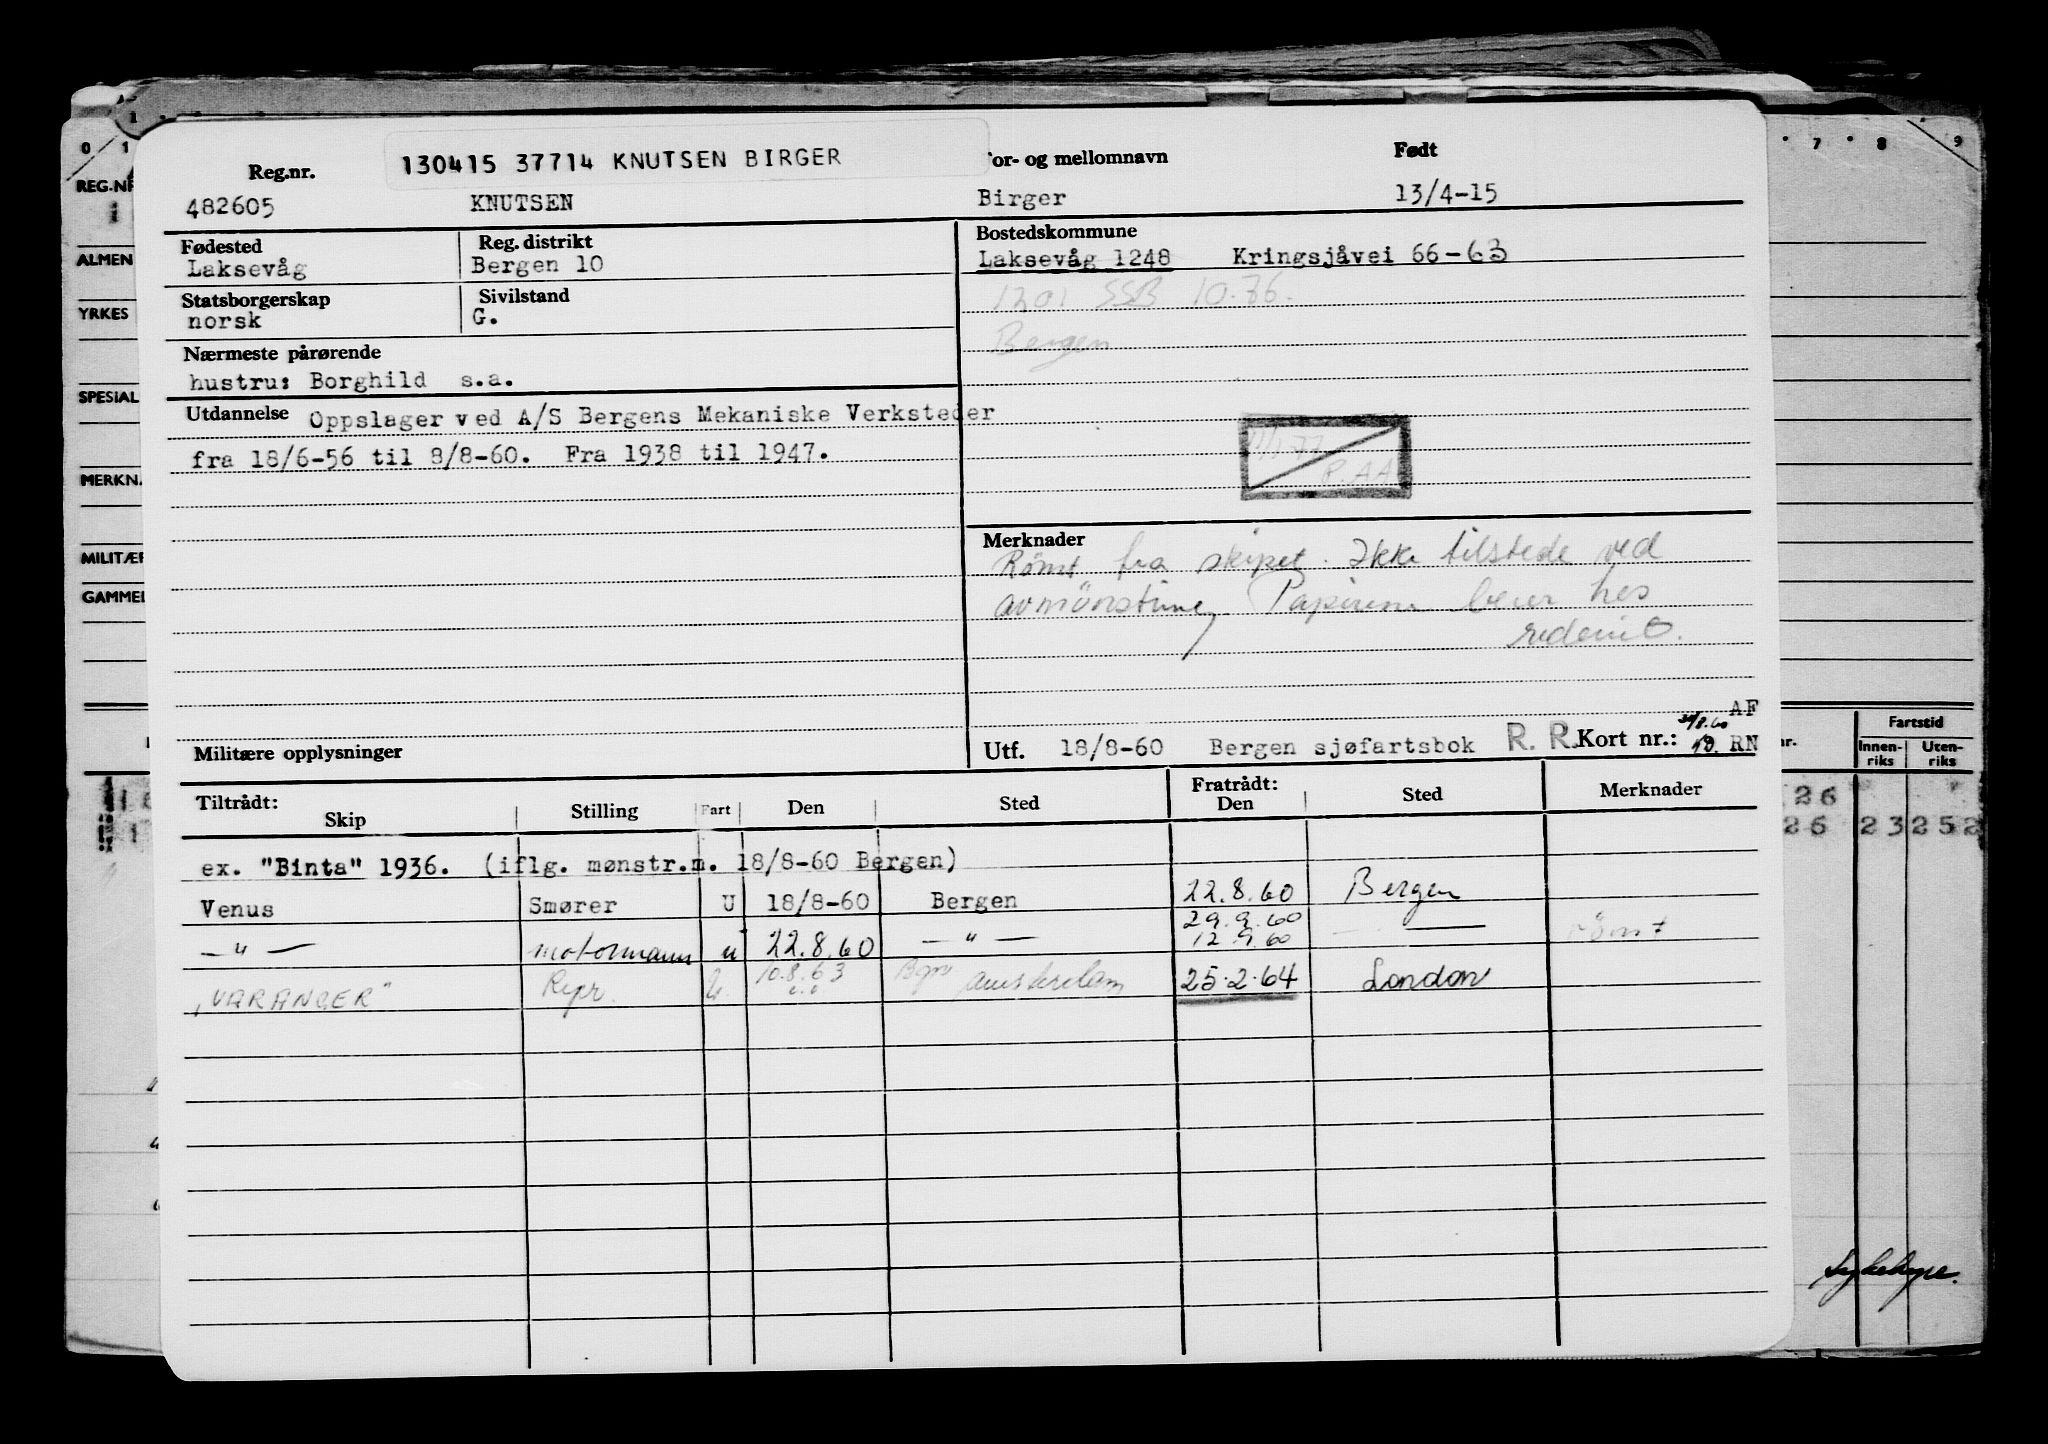 0 1 7 8 9
130415 37714 KNUTSEN BIRGER
Reg.nr. For- og mellomnavn Født
482605 KNUTSEN Birger 13/4-15
Fødested Reg. distrikt Bostedskommune
Laksevåg Bergen 10 Laksevåg 1248 Kringsjåvei 66-63
Statsborgerskap Sivilstand 1201 SSB 10.76.
norsk G.
Bergen
Nærmeste pårørende
hustru: Borghild s.a.
Utdannelse Oppslager ved A/S Bergens Mekaniske Verksteder
fra 18/6-56 til 8/8-60. Fra 1938 til 1947.
R.AA
Merknader
Römt fra skipet. Ikke tilstede ved
avmönstring Papirene beror hos
rederiet.
AF
Militære opplysninger
Utf. 18/8-60 Bergen sjøfartsbok R. R. Kort nr.: RN
Tiltrådt: Fratrådt:
Skip Stilling Fart Den Sted Den Sted Merknader
ex. "Binta" 1936. (iflg. mønstr.m. 18/8-60 Bergen)
Venus Smører U 18/8-60 Bergen 22.8.60 Bergen
29.9.60
— " — motormann u 22.8.60 — " — 12.9.60 — römt
"VARANGER" Repr. U. 10.8.63 Bgn Amsterdam 25.2.64 London
REG.NR
ALMEN
YRKES
SPESIAL
MERKN.
MILITÆR
GAMMEL
nr. Fartstid
Innen-
riks Uten-
riks
26
26 23 252